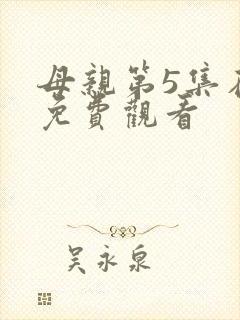 母親第5集在
免費觀看
吳永泉